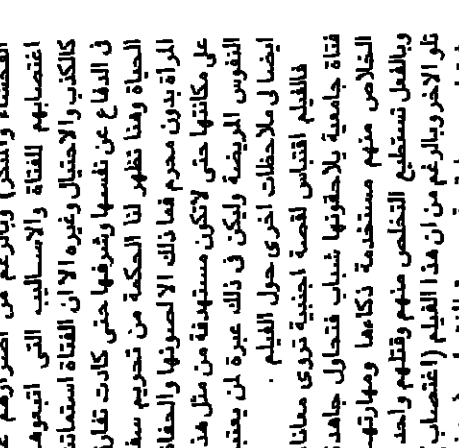 الفحشاء والمنكر) وبالرغم من اصرارهم
اغتصابهم للفتاة والاساليب التي اتبعوه
كالكذب والاحتيال وغيره الا ان الفتاة استمات
في الدفاع عن نفسها وشرفها حتى كادت تفار
الحياة وهنا تظهر لنا الحكمة من تحريم سف
المرأة بدون محرم فما ذلك الا لصونها والحفا
على مكانتها حتى لاتكون مستهدفة من مثل هذ
النفوس المريضة وليكن في ذلك عبرة لمن يعتب
ايضا لي ملاحظات اخرى حول الفيلم .
فالفيلم اقتباس لقصة اجنبية تروى معانا
فتاة جامعية يلاحقونها شباب فتحاول جاهد
الخلاص منهم مستخدمة ذكاءها ومهارته
وبالفعل تستطيع التخلص منهم وقتلهم واحد
تلو الاخر وبالرغم من ان هذا الفيلم (اغتصاب